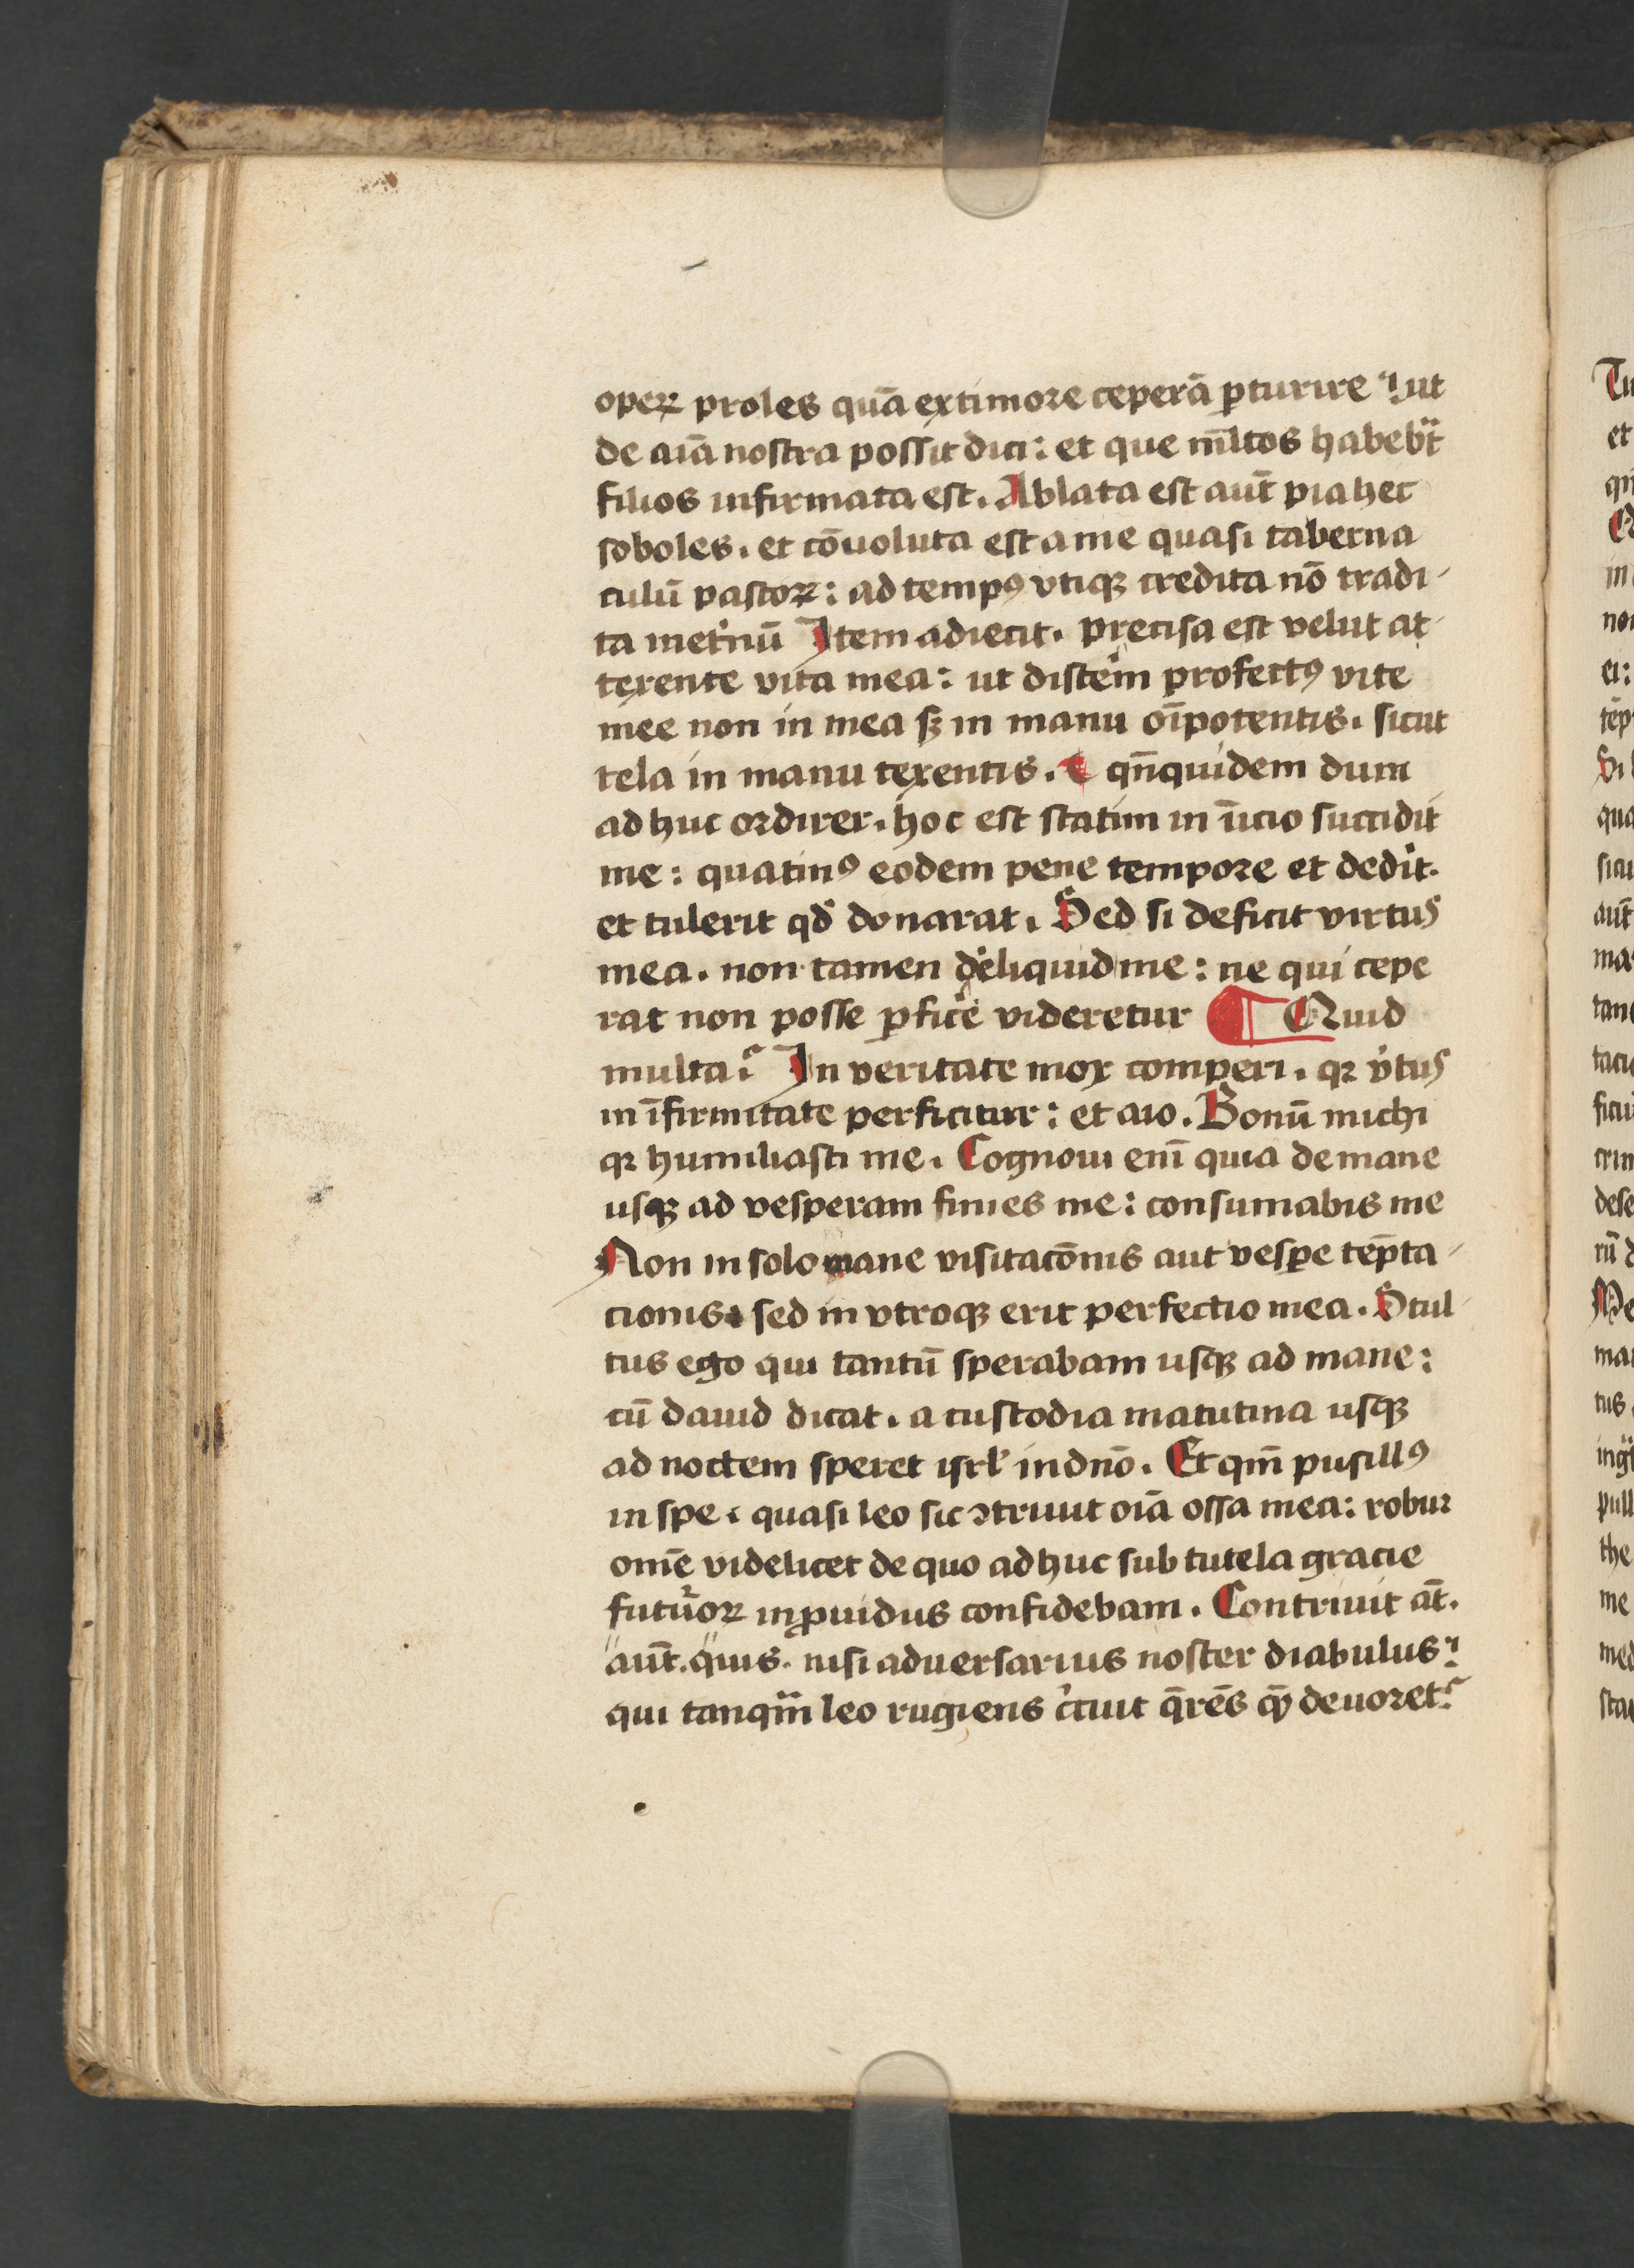 operꝝ proles quā ex timore ceperā ꝑturire ut
de aīa nostra possit dici: et que ml̄tos habebat
filios infirmata est. Ablata est aūt pia hec
soboles. et cōuoluta est a me quasi taberna
culū pastorꝝ: ad tempꝰ vtiqꝫ credita nō tradi-
ta Item adiecit. precisa est velut at
texente vita mea: ut discerem profectꝰ vite
mee non in mea sꝫ in manu oīpotentis. sicut
tela in manu texentis. qn̄quidem dum
ad huc ordirer. hoc est statim in īicio succidit
me: quatinꝰ eodem pene tempore et dedit.
et tulerit qd̄ donarat. Sed si deficit virtus
mea. non tamen dereliquid me: ne qui cepe
rat non posse ꝑficere videretur ¶ Quid
multa? In veritate mox comperi. qꝛ vᵉtus
in īfirmitate perficitur: et aio. Bonū michi
qꝛ humiliasti me. Cognoui enī quia de mane
usqꝫ ad vesperam finies me: consumabis me
Non in solo mane visitacōnis aut vesꝑe tēpta-
cionis. sed in vtroqꝫ erit perfectio mea. Stul-
tus ego qui tantū sperabam usqꝫ ad mane:
cū dauid dicat. a custodia matutina usqꝫ
ad noctem speret isrl' in dn̄o. Et qm̄ pusillꝰ
in spe. quasi leo sic ꝯtriuit oīa ossa mea: robur
om̄e videlicet de quo ad huc sub tutela gracie
futurorꝝ inꝓuidus confidebam. Contriuit āt.
aūt. quis. nisi aduersarius noster diabulus?
qui tanquam leo rugiens circuit q̄rēs quem deuoret?